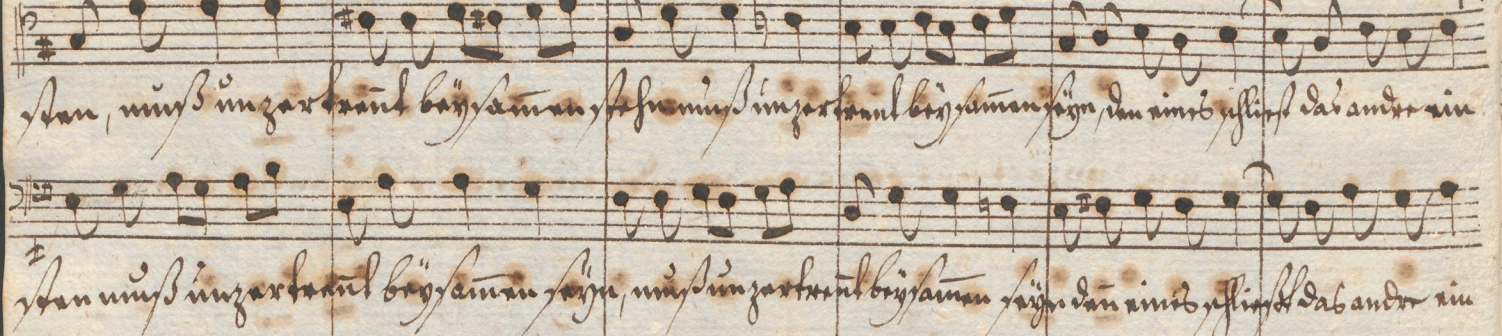 sten, muß unzertreñt beÿsam̃en stehn muß unzertrent beÿsam̃en seÿn, den eines schliest das andre ein
sten muß unzertreñt beÿsam̃en seÿn, muß unzertreñt beÿsam̃en seÿn deñ eines schliest das andre ein